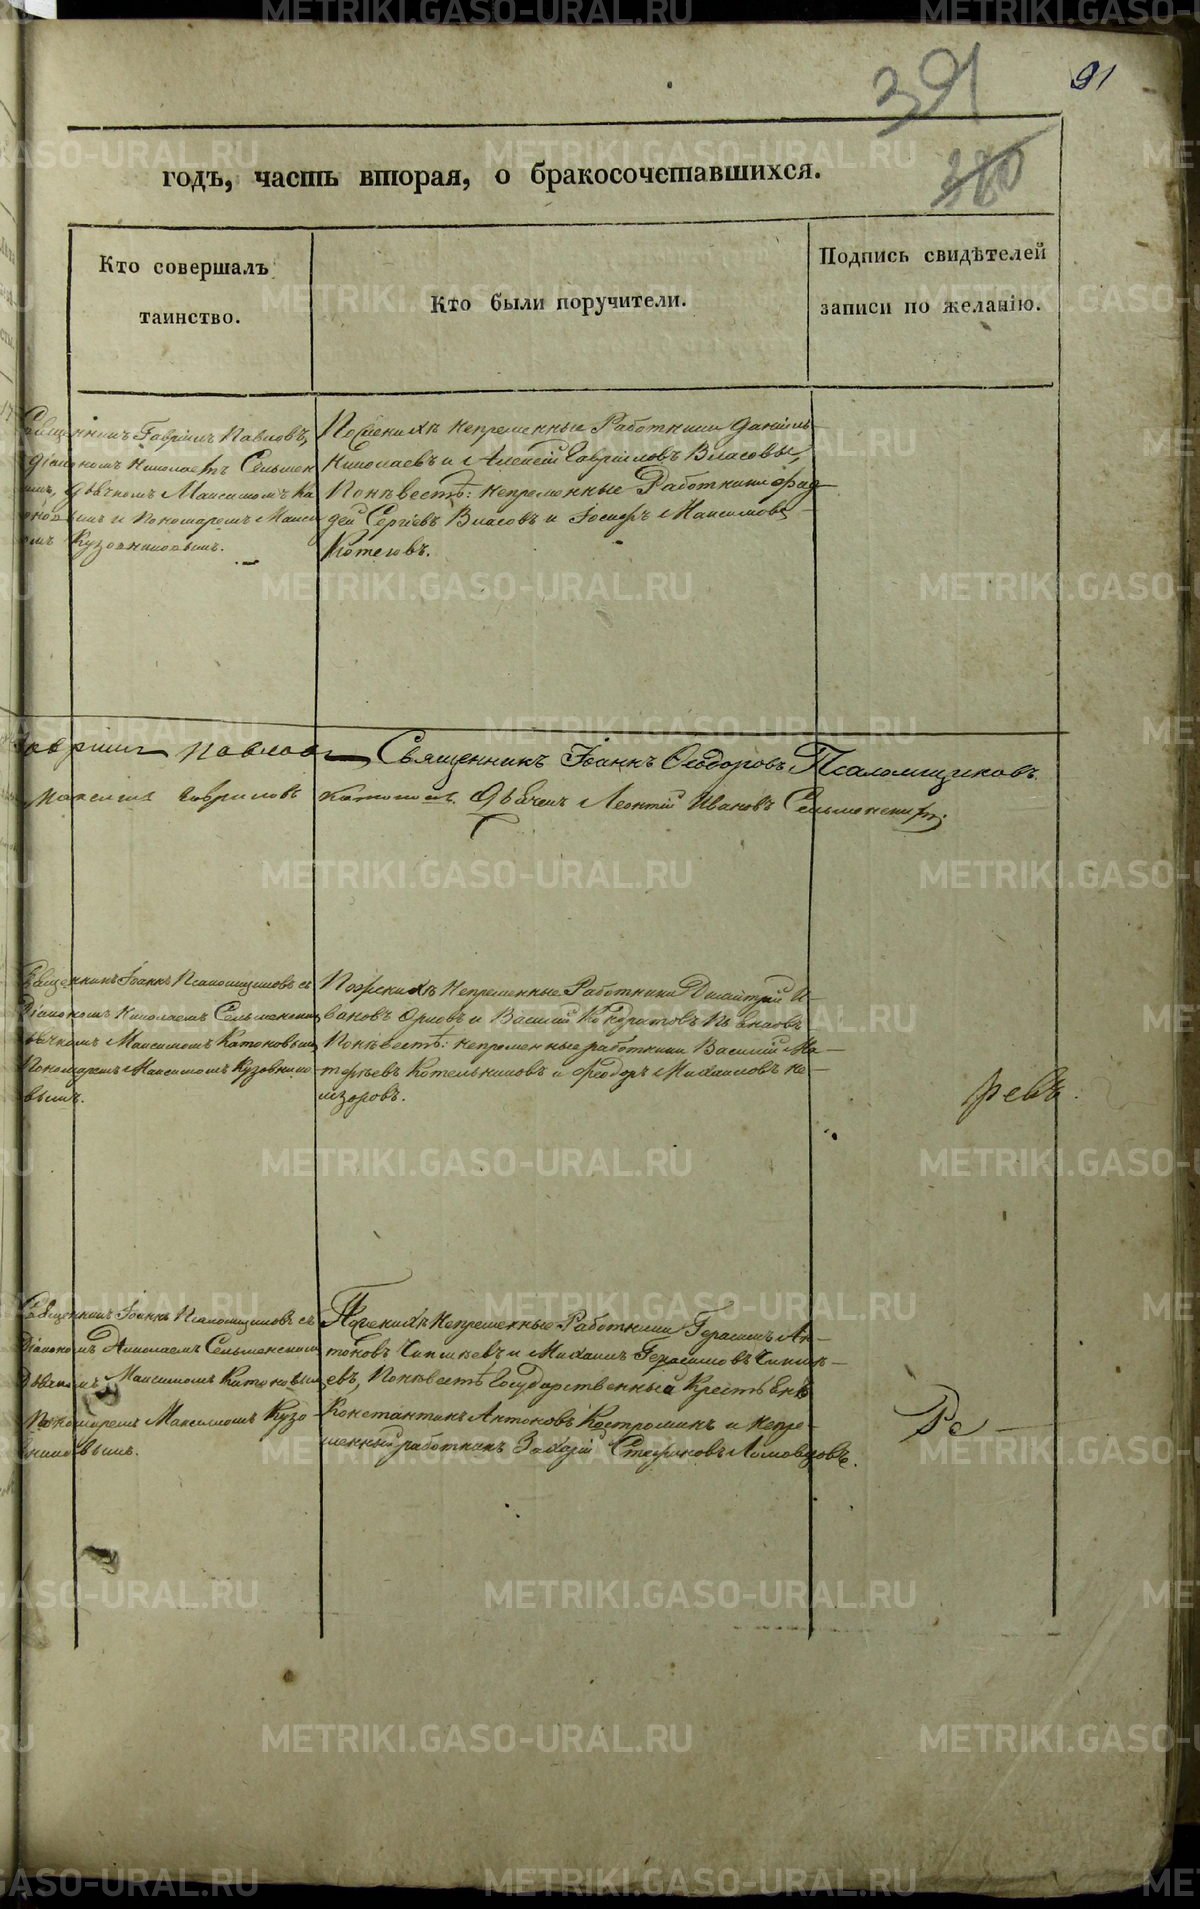 391
91
380
годъ, часть вторая, о бракосочетавшихся.
Кто совершалъ
таинство.
Кто были поручители.
Подпись свидѣтелей
записи по желанію.
Священникъ Гавріилъ Павловъ,
Діакономъ Николаемъ Сельменск
Дьячкомъ Максимомъ Ка
и Пономаремъ Макси
Кузовниковымъ.
По женихѣ непременные Работники Даніилъ
Николаевъ и Алексѣй Гавріиловъ Власовы,
По невестѣ: непременные Работники Фад
дей Сергіевъ Власовъ и Іосифъ Максимовъ
Котеговъ.
Гавріилъ Павловъ Священникъ Іоаннъ Ѳеодоровъ Псаломщиковъ.
Максимъ Гавриловъ Катоновъ. Дьячекъ Леонтій Ивановъ Сельменскій.
Священникъ Іоаннъ Псаломщиковъ съ
Діакономъ Николаемъ Сельменским
Дьячкомъ Максимомъ Катоновым
Пономаремъ Максимомъ Кузовнико
вымъ.
По женихѣ Непременные Работники Димитрій И-
вановъ Орловъ и Василій Кондратовъ
По невестѣ: непременные работники Василій Ма-
тфѣевъ Котельниковъ и Феодоръ Михаиловъ Ко-
мзоровъ.
ревъ.
Священникъ Іоаннъ Псаломщиковъ съ
Діакономъ Николаемъ Сельменским
Дьячкомъ Максимомъ Катоновым
Пономаремъ Максимомъ Кузо
вниковымъ.
По женихѣ Непременные Работники Герасимъ Ан-
тоновъ и Михаилъ Герасимовъ
евъ, По невестѣ Государственный Крестьянъ
Константинъ Антоновъ Костроминъ и непре-
менный работникъ Захарій Стефановъ Ломовцовъ.
Ре —
METRIKI.GASO-URAL.RU